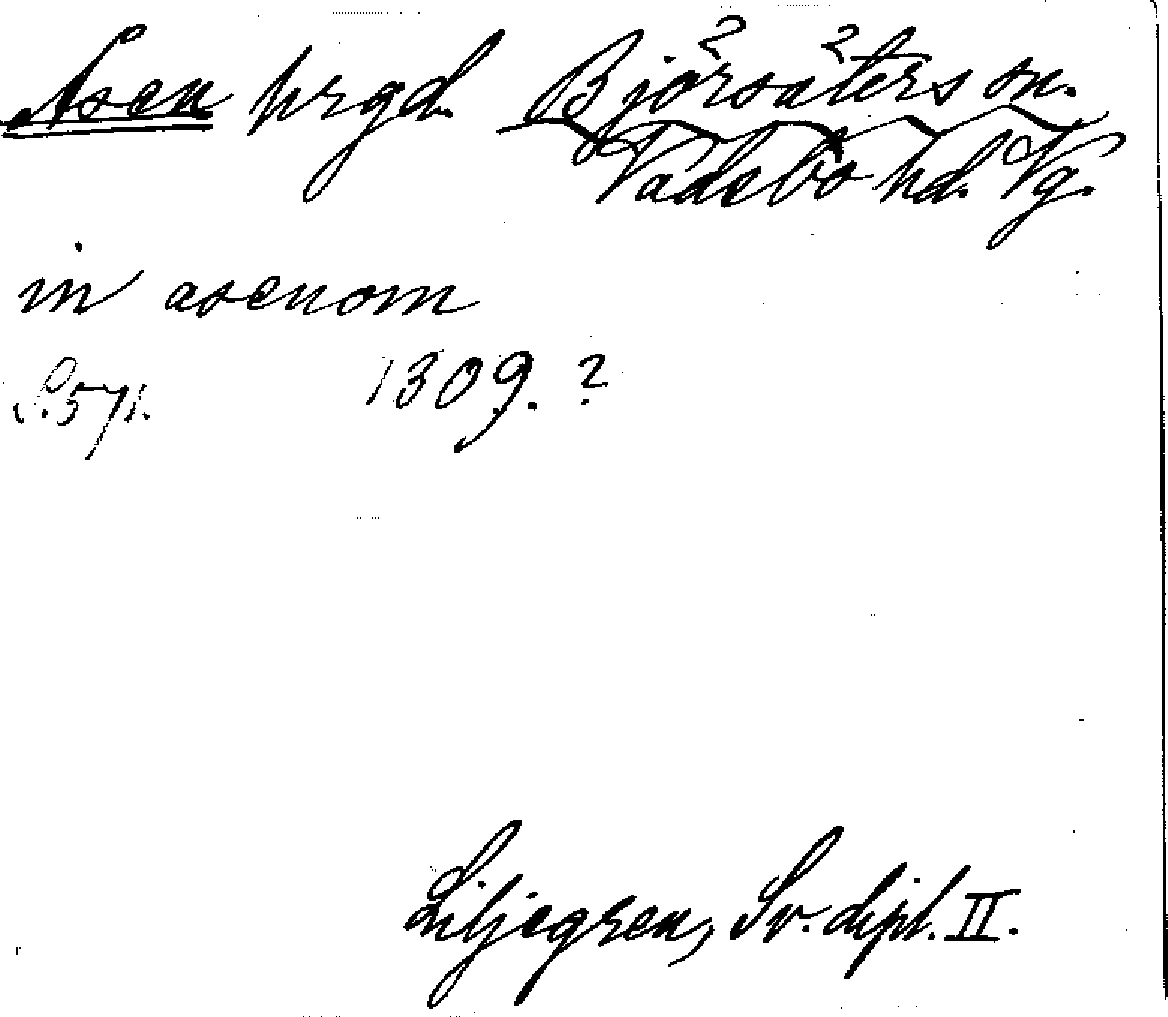 Asen hrgd. Björsäters sn.
Vadsbo hd. Vg.
in asenom
S. 571. 1309. ?
Liljegren, Sv. dipl. II.